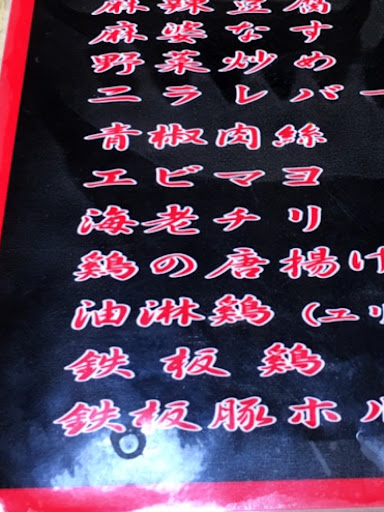 麻辣豆腐
麻婆なす
野菜炒め
ニラレバー
青椒肉絲
エビマヨ
海老チリ
鶏の唐揚げ
油淋鶏（ユリ
鉄板鶏
鉄板豚ホル